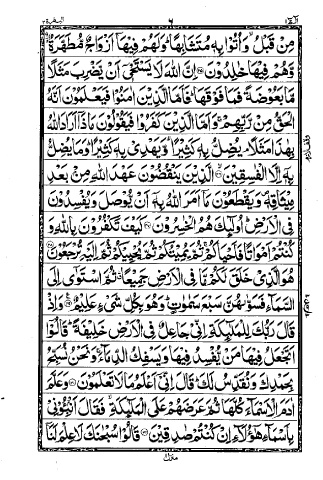 البقرة ٢ ٦ الٓمّٓ ١
مِنْ قَبْلُ وَاُتُوْا بِهٖ مُتَشَابِهًا وَلَهُمْ فِيْهَآ اَزْوَاجٌ مُّطَهَّرَةٌ
وَّهُمْ فِيْهَا خٰلِدُوْنَ ۝ اِنَّ اللّٰهَ لَا يَسْتَحْيٖٓ اَنْ يَّضْرِبَ مَثَلًا
مَّا بَعُوْضَةً فَمَا فَوْقَهَا فَاَمَّا الَّذِيْنَ اٰمَنُوْا فَيَعْلَمُوْنَ اَنَّهُ
الْحَقُّ مِنْ رَّبِّهِمْ وَاَمَّا الَّذِيْنَ كَفَرُوْا فَيَقُوْلُوْنَ مَاذَآ اَرَادَ اللّٰهُ
بِهٰذَا مَثَلًا يُضِلُّ بِهٖ كَثِيْرًا وَّيَهْدِيْ بِهٖ كَثِيْرًا وَمَا يُضِلُّ
بِهٖٓ اِلَّا الْفٰسِقِيْنَ ۝ الَّذِيْنَ يَنْقُضُوْنَ عَهْدَ اللّٰهِ مِنْ بَعْدِ
مِيْثَاقِهٖ وَيَقْطَعُوْنَ مَآ اَمَرَ اللّٰهُ بِهٖٓ اَنْ يُّوْصَلَ وَيُفْسِدُوْنَ
فِي الْاَرْضِ اُولٰٓئِكَ هُمُ الْخٰسِرُوْنَ ۝ كَيْفَ تَكْفُرُوْنَ بِاللّٰهِ وَ
كُنْتُمْ اَمْوَاتًا فَاَحْيَاكُمْ ثُمَّ يُمِيْتُكُمْ ثُمَّ يُحْيِيْكُمْ ثُمَّ اِلَيْهِ تُرْجَعُوْنَ ۝
هُوَ الَّذِيْ خَلَقَ لَكُمْ مَّا فِي الْاَرْضِ جَمِيْعًا ثُمَّ اسْتَوٰٓى اِلَى
السَّمَآءِ فَسَوّٰىهُنَّ سَبْعَ سَمٰوٰتٍ وَهُوَ بِكُلِّ شَيْءٍ عَلِيْمٌ ۝ وَاِذْ
قَالَ رَبُّكَ لِلْمَلٰٓئِكَةِ اِنِّيْ جَاعِلٌ فِي الْاَرْضِ خَلِيْفَةً قَالُوْٓا
اَتَجْعَلُ فِيْهَا مَنْ يُّفْسِدُ فِيْهَا وَيَسْفِكُ الدِّمَآءَ وَنَحْنُ نُسَبِّحُ
بِحَمْدِكَ وَنُقَدِّسُ لَكَ قَالَ اِنِّيْٓ اَعْلَمُ مَا لَا تَعْلَمُوْنَ ۝ وَعَلَّمَ
اٰدَمَ الْاَسْمَآءَ كُلَّهَا ثُمَّ عَرَضَهُمْ عَلَى الْمَلٰٓئِكَةِ فَقَالَ اَنْۢبِـُٔوْنِيْ
بِاَسْمَآءِ هٰٓؤُلَآءِ اِنْ كُنْتُمْ صٰدِقِيْنَ ۝ قَالُوْا سُبْحٰنَكَ لَا عِلْمَ لَنَآ